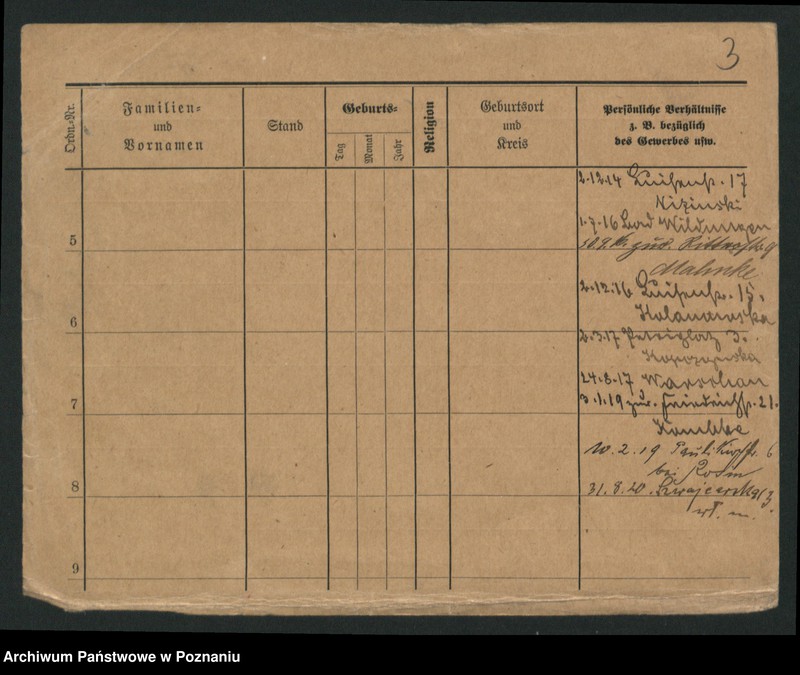 3
Ordn.-Nr.
Familien-
und
Vornamen
Stand
Geburts-
Tag
Monat
Jahr
Religion
Geburtsort
und
Kreis
Persönliche Verhältnisse
z. B. bezüglich
des Gewerbes usw.
2.12.14 Luisenstr. 17
Nizinski
1.7.16 Bad Wildungen
zur. Ritterstr. 9
Mahnke
2.12.16 Luisenstr. 15.
Kolanowska
2.3.17 Petriplatz 3.
24.8.17 Warschau
3.1.19 zur. Friedrichstr. 21.
10.2.19 Paulikirchstr. 6
bei Rosin
31.8.20. Szwajcarska 13
wł. m.
5
6
7
8
9
Archiwum Państwowe w Poznaniu